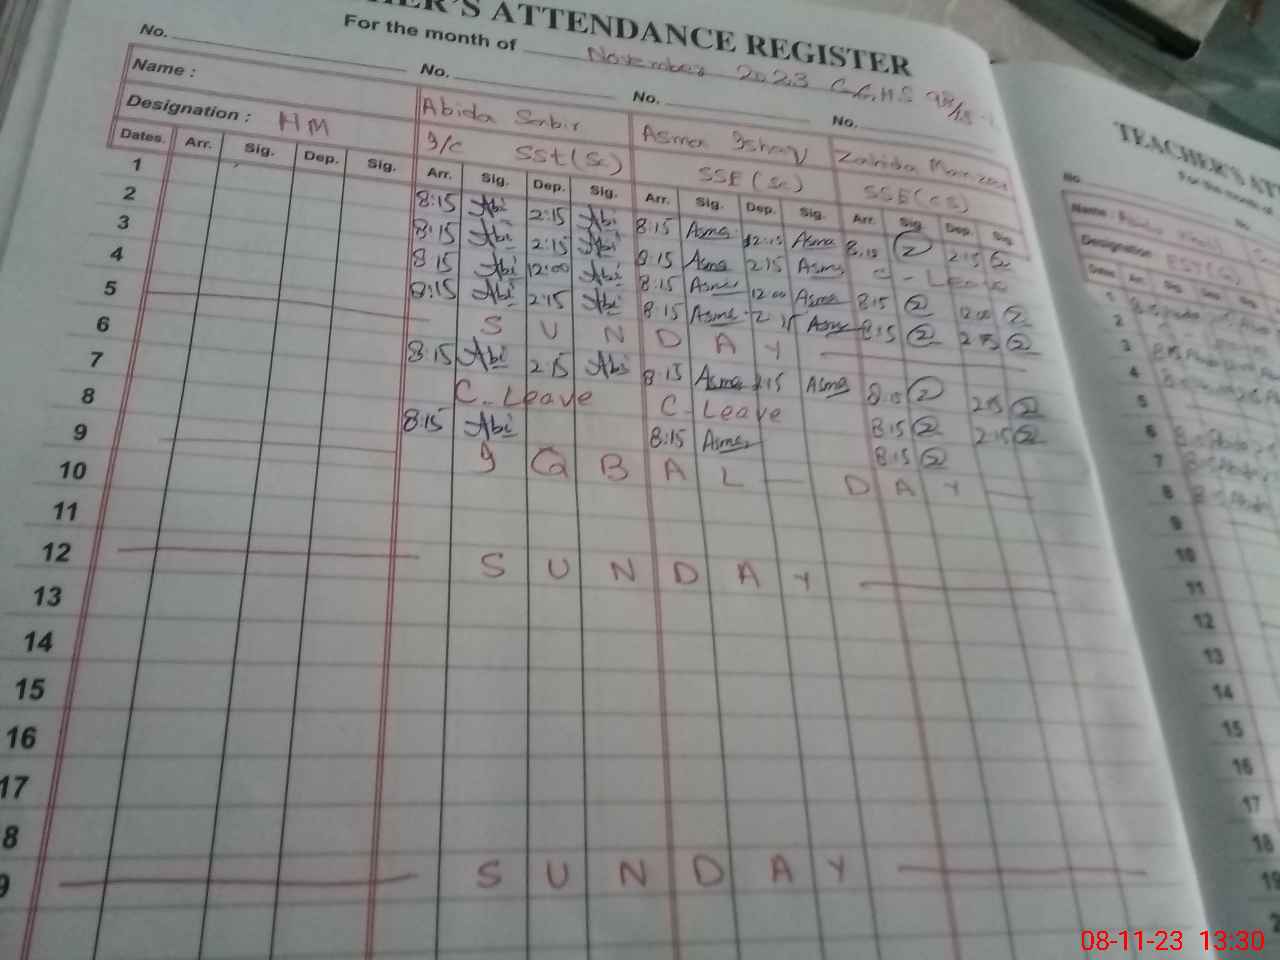 TEACHER'S ATTENDANCE REGISTER
For the month of November 2023 G.G.H.S 98/15-L
No. No. No. No.
Name : Abida Sabir Asma Ishaq Zahida Manzoor
Designation : HM I/c SSt(Sc) SSE (Sc) SSE(CS)
Dates. Arr. Sig. Dep. Sig. Arr. Sig. Dep. Sig. Arr. Sig. Dep. Sig. Arr. Sig. Dep. Sig.
1 8:15 Abi 2:15 Abi 8:15 Asma 2:15 Asma 8:15 2:15
2 8:15 Abi 2:15 Abi 8:15 Asma 2:15 Asma C - Leave
3 8:15 Abi 12:00 Abi 8:15 Asma 12:00 Asma 8:15 12:00
4 8:15 Abi 2:15 Abi 8:15 Asma 2:15 Asma 8:15 2:15
5 S U N D A Y
6 8:15 Abi 2:15 Abi 8:15 Asma 2:15 Asma 8:15 2:15
7 C - Leave C - Leave 8:15 2:15
8 8:15 Abi 8:15 Asma 8:15
9 I Q B A L D A Y
10
11
12 S U N D A Y
13
14
15
16
17
8
9 S U N D A Y
TEACHER'S AT
For the month of
No.
No.
Name :
Designation : EST
Dates Arr. Sig. Dep. Sig.
1
2
3
4
5
6
7
8
9
10
11
12
13
14
15
16
17
18
19
2
08-11-23 13:30